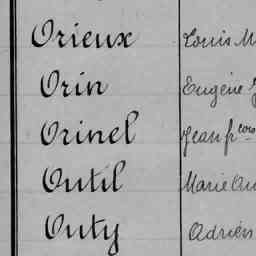 Orieux Louis M
Orin Eugène
Orinel Jean frcois
Outil Marie Au
Outy Adrien